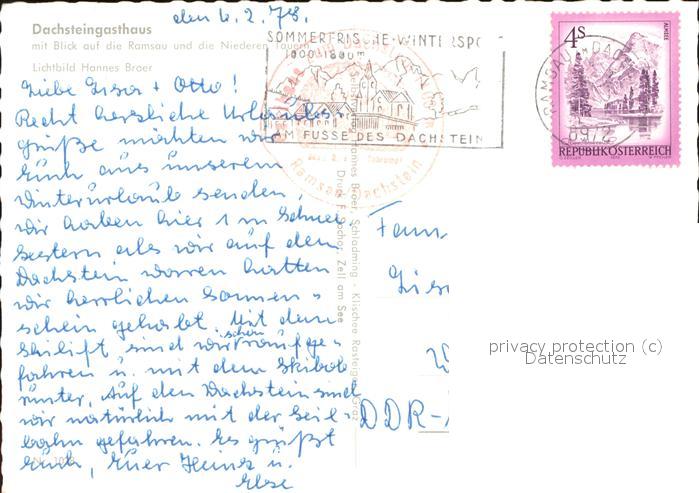 Dachsteingasthaus
mit Blick auf die Ramsau und die Niederen Tauern
Lichtbild Hannes Broer
den 6.2.78.
Liebe Gisa + Otto!
Recht herzliche Urlaubs-
grüße möchten wir
Euch aus unserem
Winterurlaub senden,
wir haben hier 1 m Schnee
gestern als wir auf dem
Dachstein waren hatten
wir herrlichen Sonnen-
schein gehabt. Mit dem
Skilift sind wir schon raufge-
fahren u. mit dem Skibob
runter. Auf den Dachstein sind
wir natürlich mit der Seil-
bahn gefahren. Es grüßt
Euch, Euer Heinz u.
Else
SOMMERFRISCHE-WINTERSPO
1000-1800m
AM FUSSE DES DACHSTEIN
Ramsau Dachstein
Hannes Broer, Schladming - Klischee Rasteiger, Graz
Druck F. Gschor, Zell am See
RAMSAU AM DAC
8972
4s
ALMSEE
REPUBLIK ÖSTERREICH
Fam
Gis
DDR-
privacy protection (c)
Datenschutz